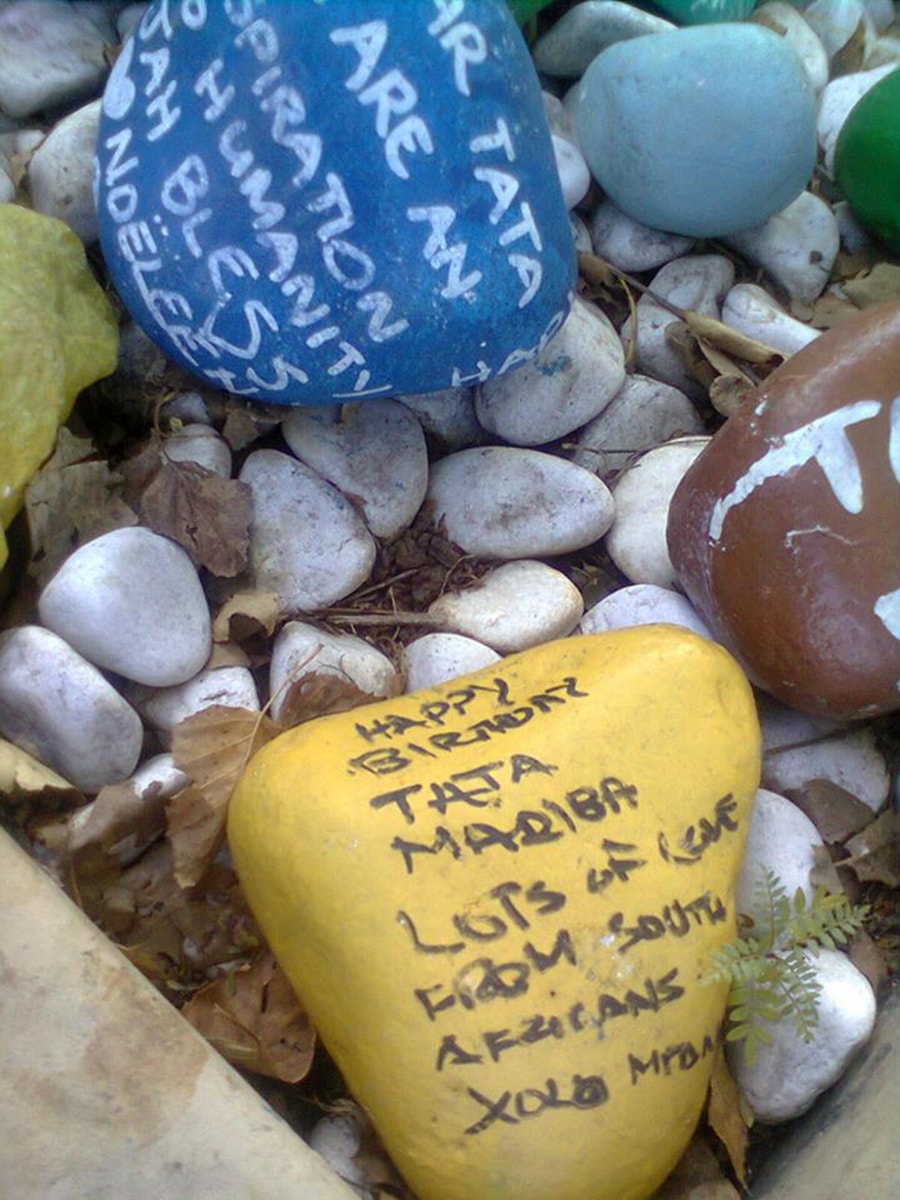 AR TATA
ARE AN
SPIRATION
HUMANITY
AH BLESS
HAP
T
HAPPY
BIRTHDAY
TATA
MADIBA
LOTS OF LOVE
FROM SOUTH
AFRICANS
XOLO